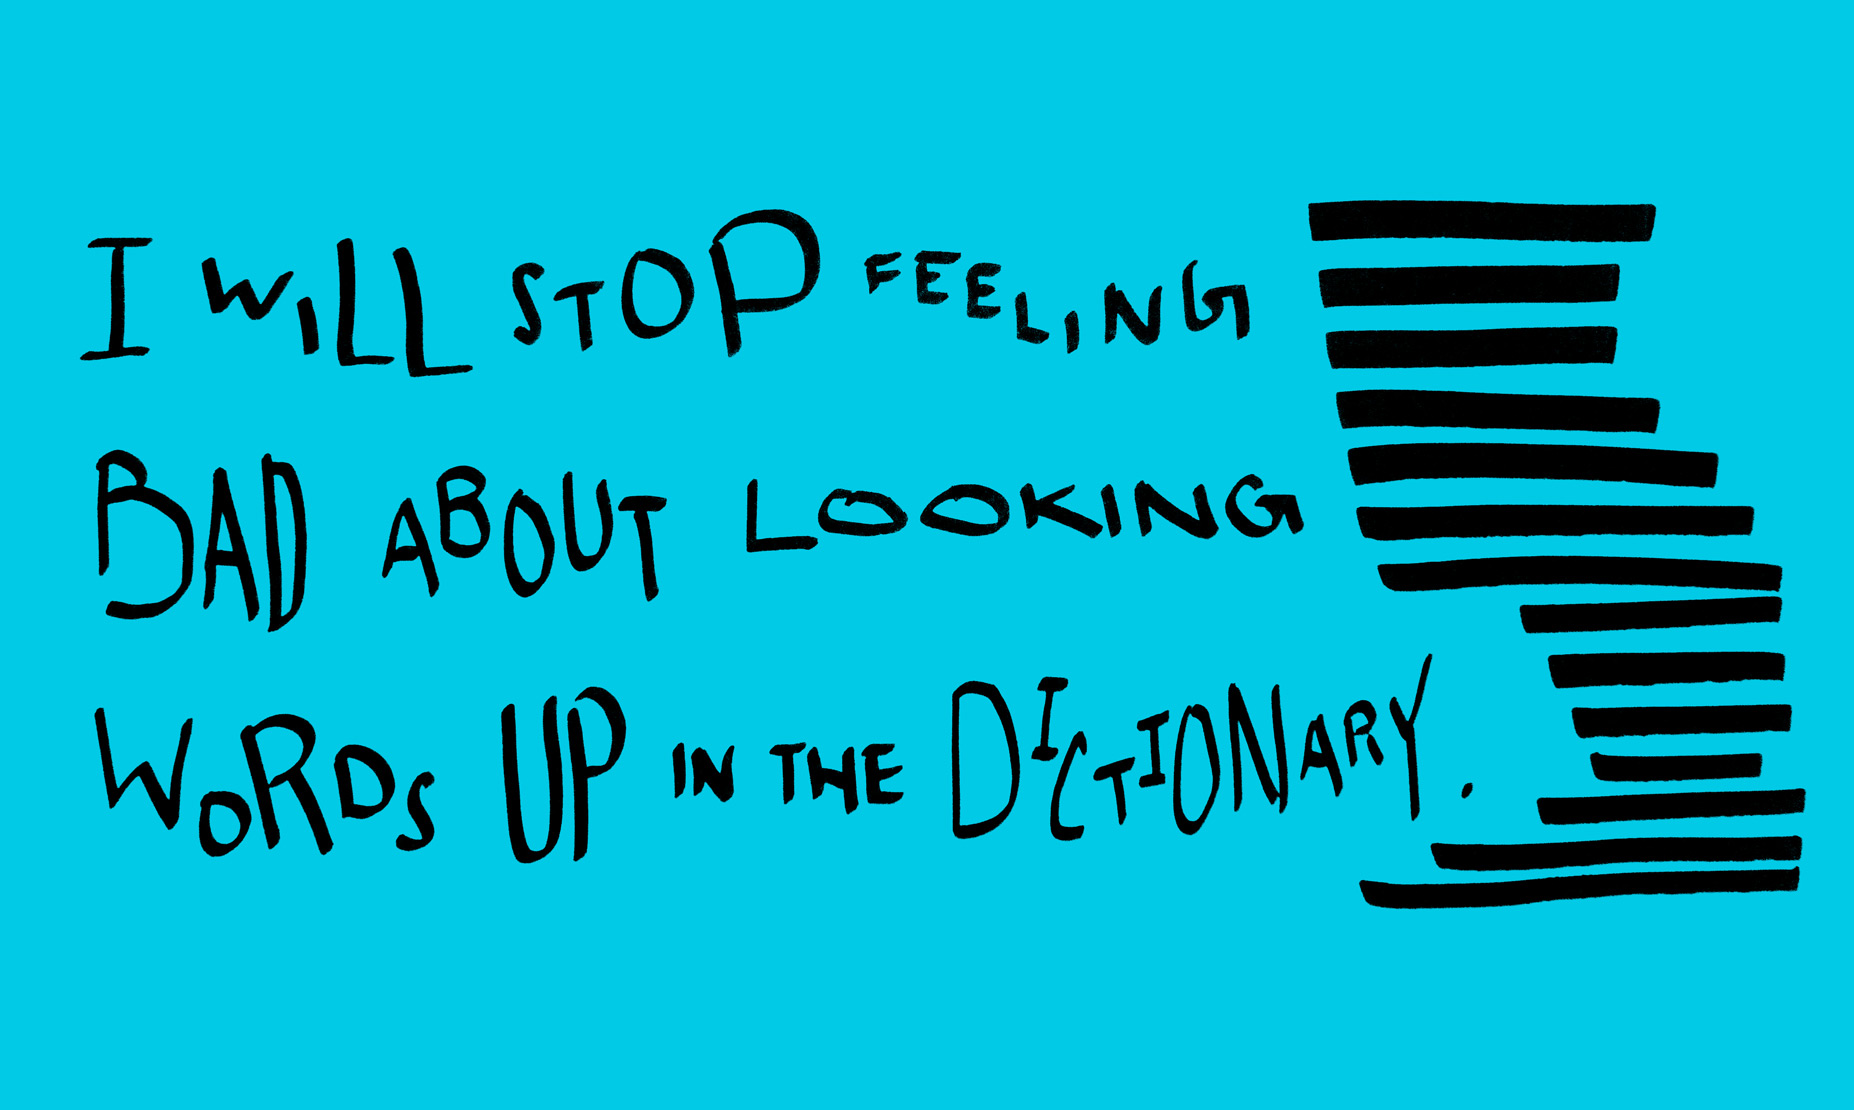 I WILL STOP FEELING
BAD ABOUT LOOKING
WORDS UP IN THE DICTIONARY.